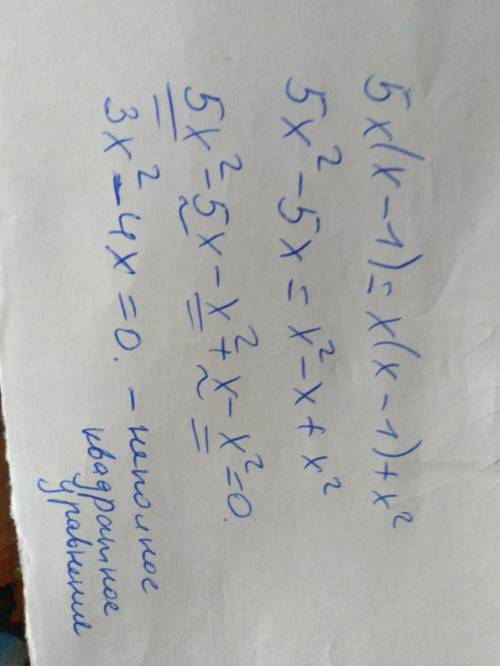 5x(x-1)=x(x-1)+x²
5x²-5x=x²-x+x²
5x²-5x-x²+x-x²=0.
3x²-4x=0. - неполное
квадратное
уравнение